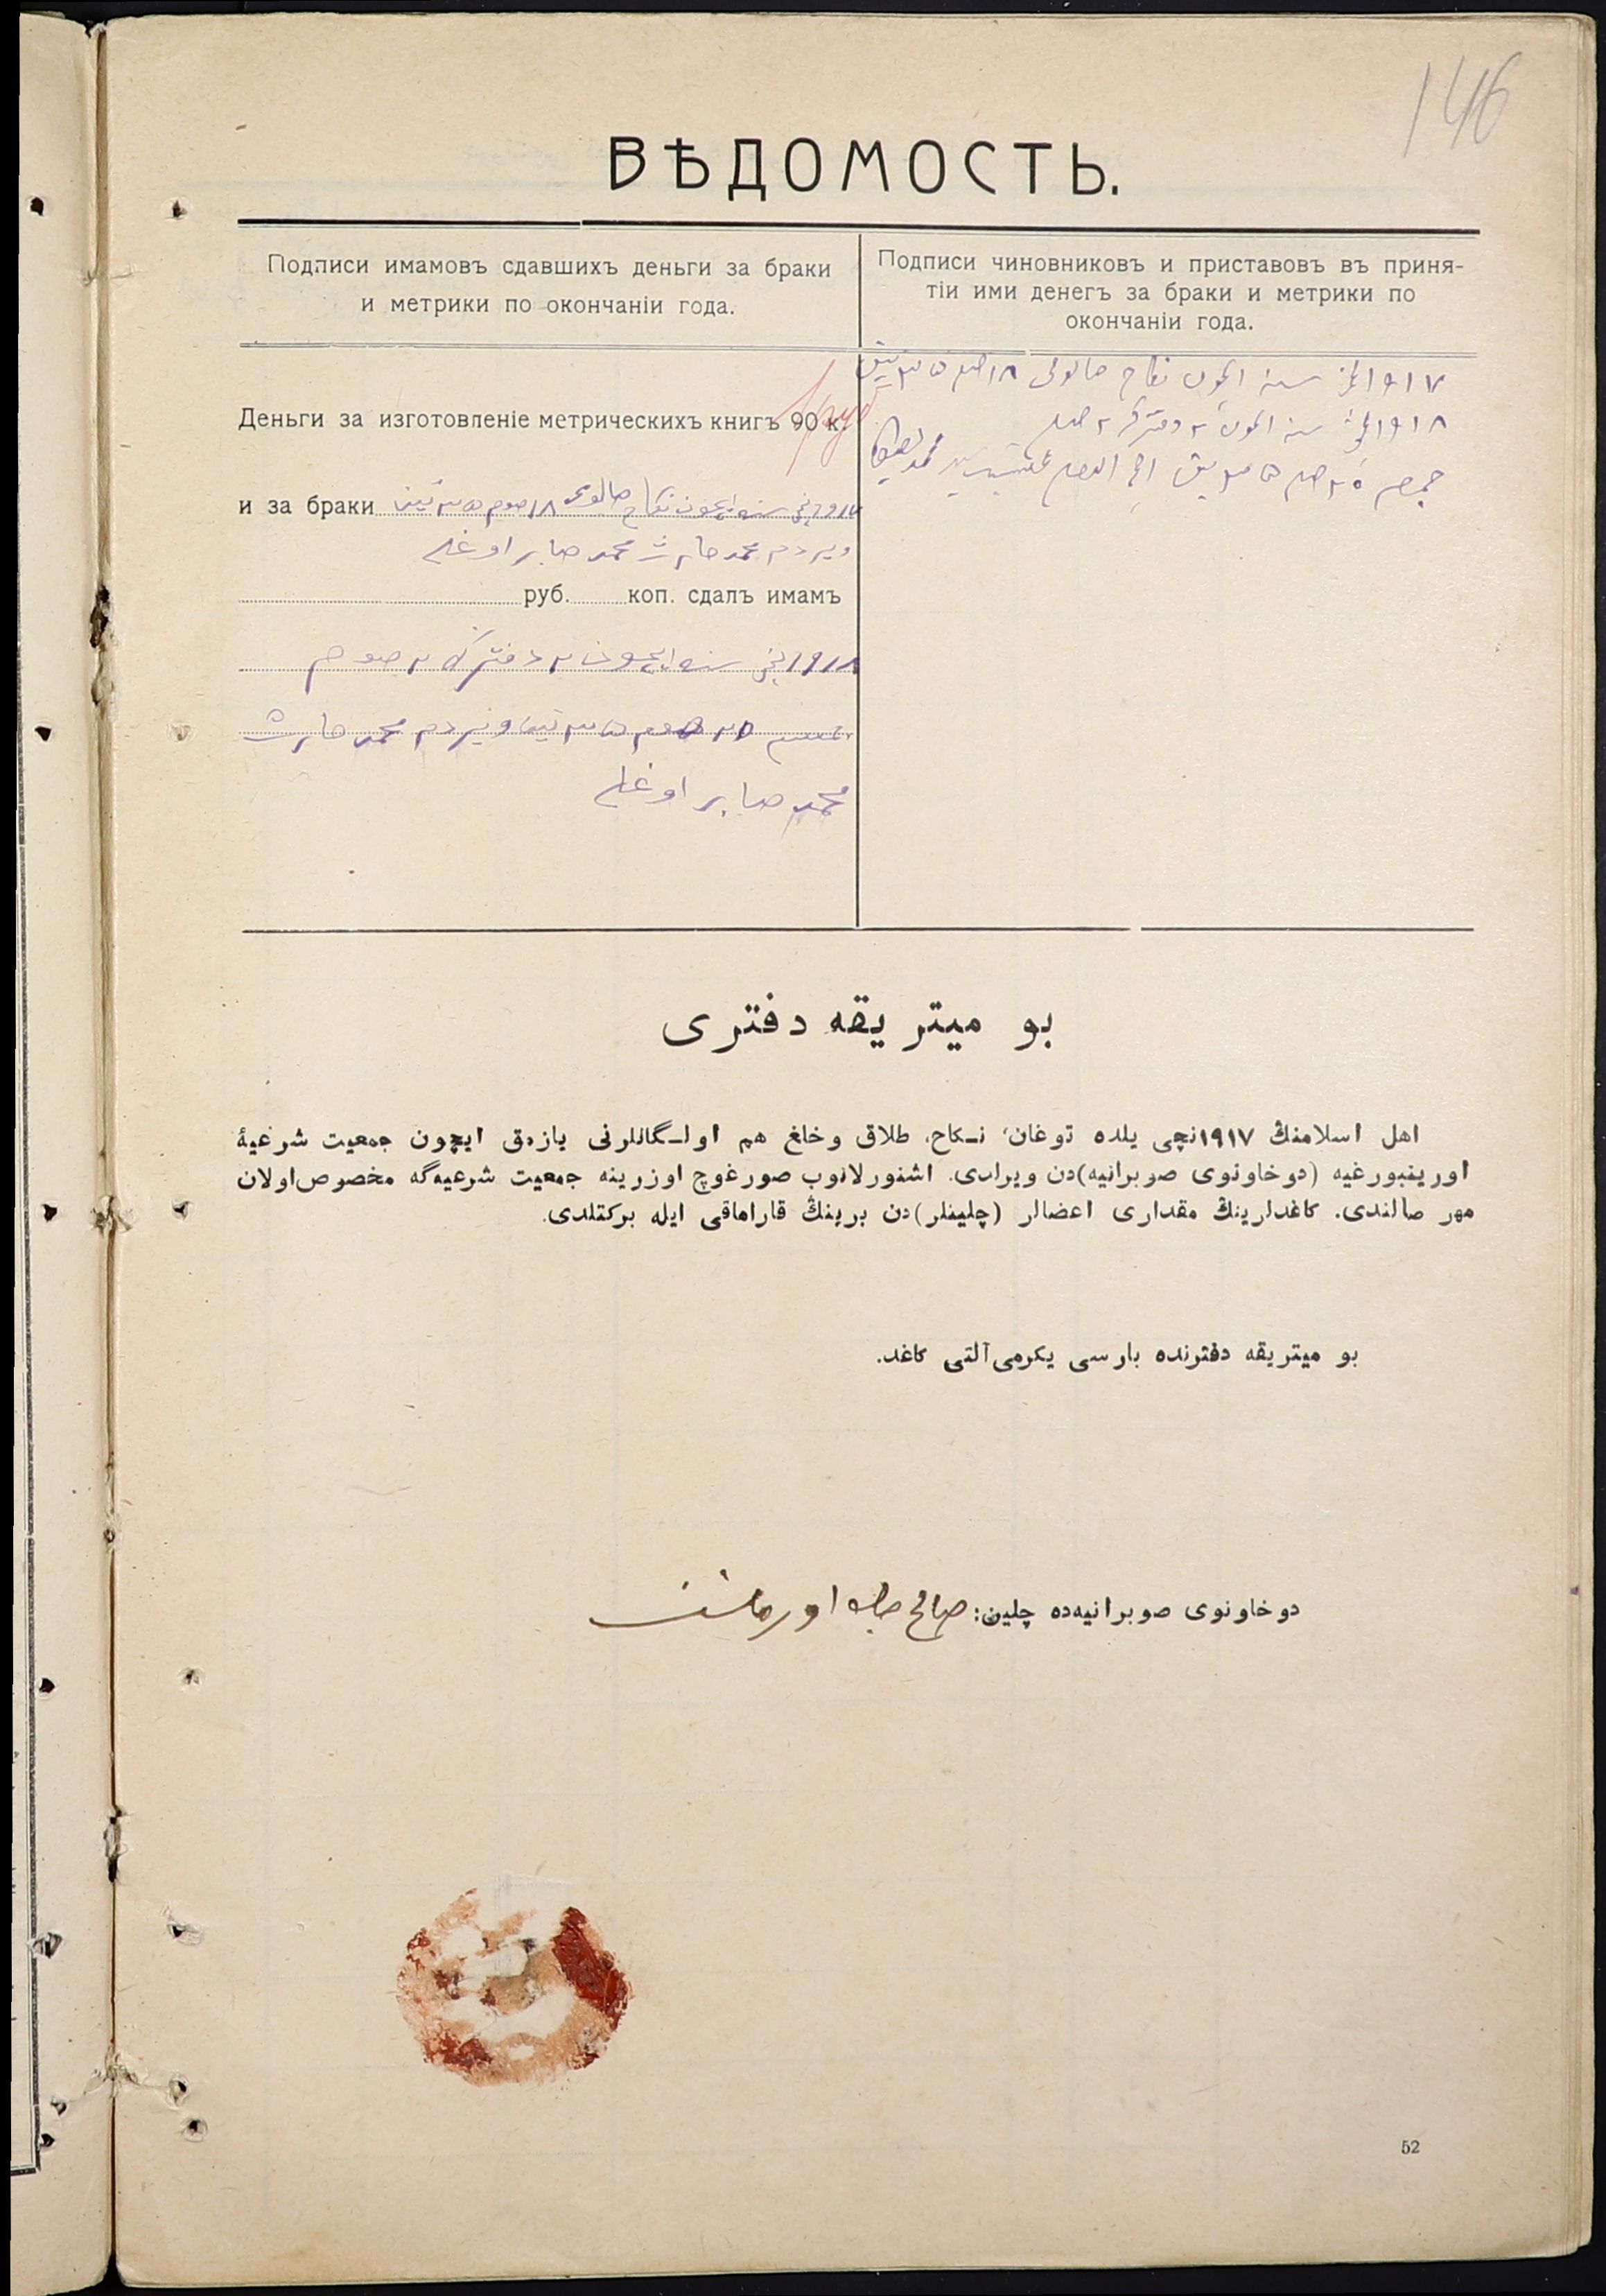 146
ВѢДОМОСТЬ.
Подписи имамовъ сдавшихъ деньги за браки
и метрики по окончаніи года.
Подписи чиновниковъ и приставовъ въ приня-
тіи ими денегъ за браки и метрики по
окончаніи года.
Деньги за изготовленіе метрическихъ книгъ 90 к.
и за браки ١٩١٧نچی سنه ایچون نکاح صالومی ١٨ صوم ٣٥ تین
ویردم محمد حارث محمد صابر اوغلی
руб. коп. сдалъ имамъ
١٩١٨نچی سنه ایچون ٢ دفترگه ٢ صوم
٣٥ تین ویردم محمد حارث
محمد صابر اوغلی
١٩١٧نچی سنه ایچون نکاح صالومی ١٨
١٩١٨نچی سنه ایچون ٢ دفترگه ٢
بو میتریقه دفتری
اهل اسلامنڭ ١٩١٧نچی یلده توغان، نـکاح، طلاق وخلغ هم اولـگانلرنی یازمق ایچون جمعیت شرعیهٔ
اورینبورغیه (دوخاونوی صوبرانیه)دن ویرلدی. اشنورلانوب صورغوچ اوزرینه جمعیت شرعیه‌گه مخصوص اولان
مهر صالندی. كاغدلرینڭ مقداری اعضالر (چلینلر)دن برینڭ قارامافی ایله برکتلدی.
بو میتریقه دفترنده بارسی یکرمی آلتی كاغد.
دوخاونوی صوبرانیه‌ده چلین: صالح
52